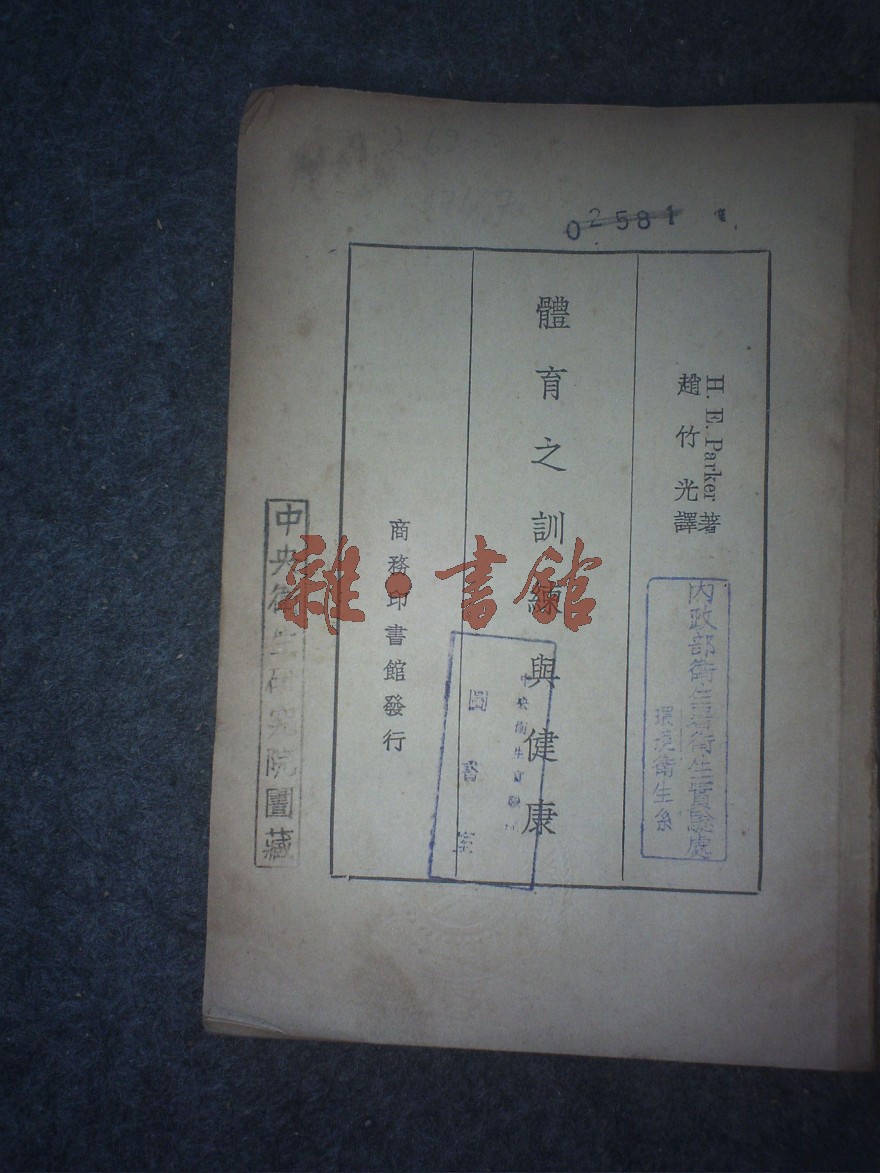 02581
H. E. Parker 著
趙竹光譯
體育之訓練與健康
商務印書館發行
內政部衛生署衛生實驗處
環境衛生系
中央衛生實驗
圖書室
中央衛生研究院圖藏
雜·書館